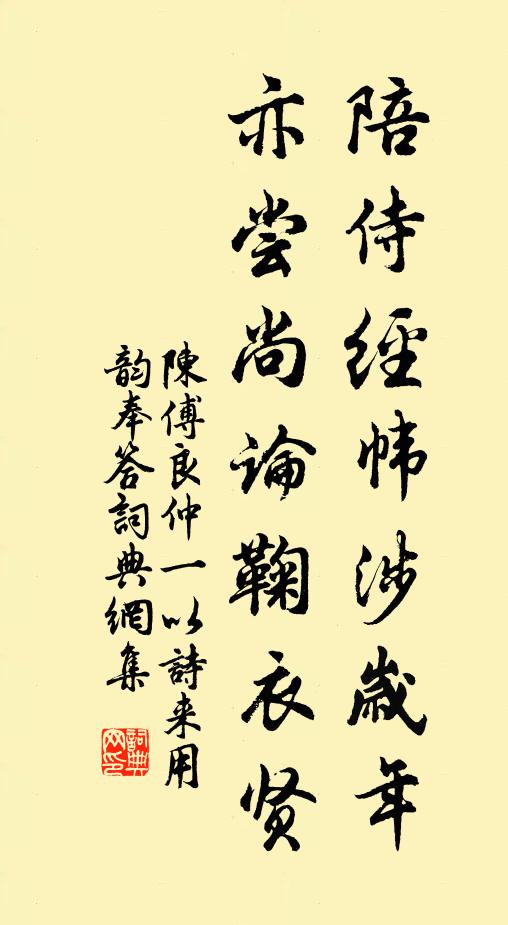 陪侍經帏涉歲年
亦尝尚論鞠衣贤
陳傅良仲一以詩来用
韵奉答詞典網集
詞典网印